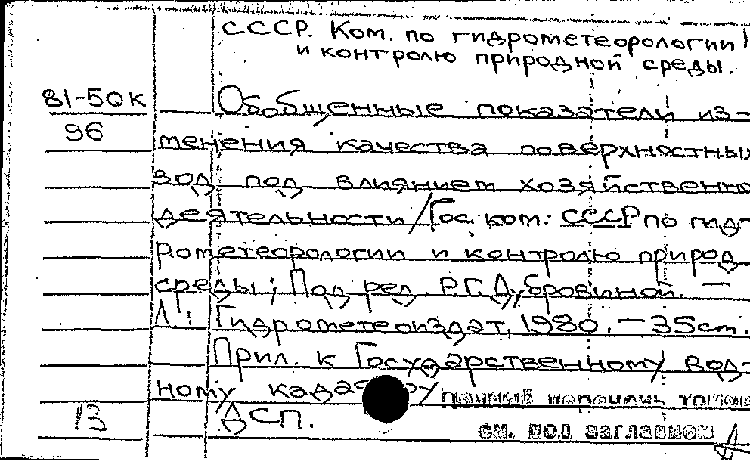 СССР. Ком. по гидрометеорологии
и контролю природной среды.
81-50К
96
Обобщенные показатели из-
менения качества поверхностных
вод под влиянием хозяйственно
деятельности / Гос. ком. СССР по гид-
рометеорологии и контролю природ
среды; Под ред. Р.Г.Д,бровиной. —
Л.: Гидрометеоиздат, 1980. — 35 см.
Прил. к Государственному вод-
ному кадастру
13
ДСП.
см. под заглавием